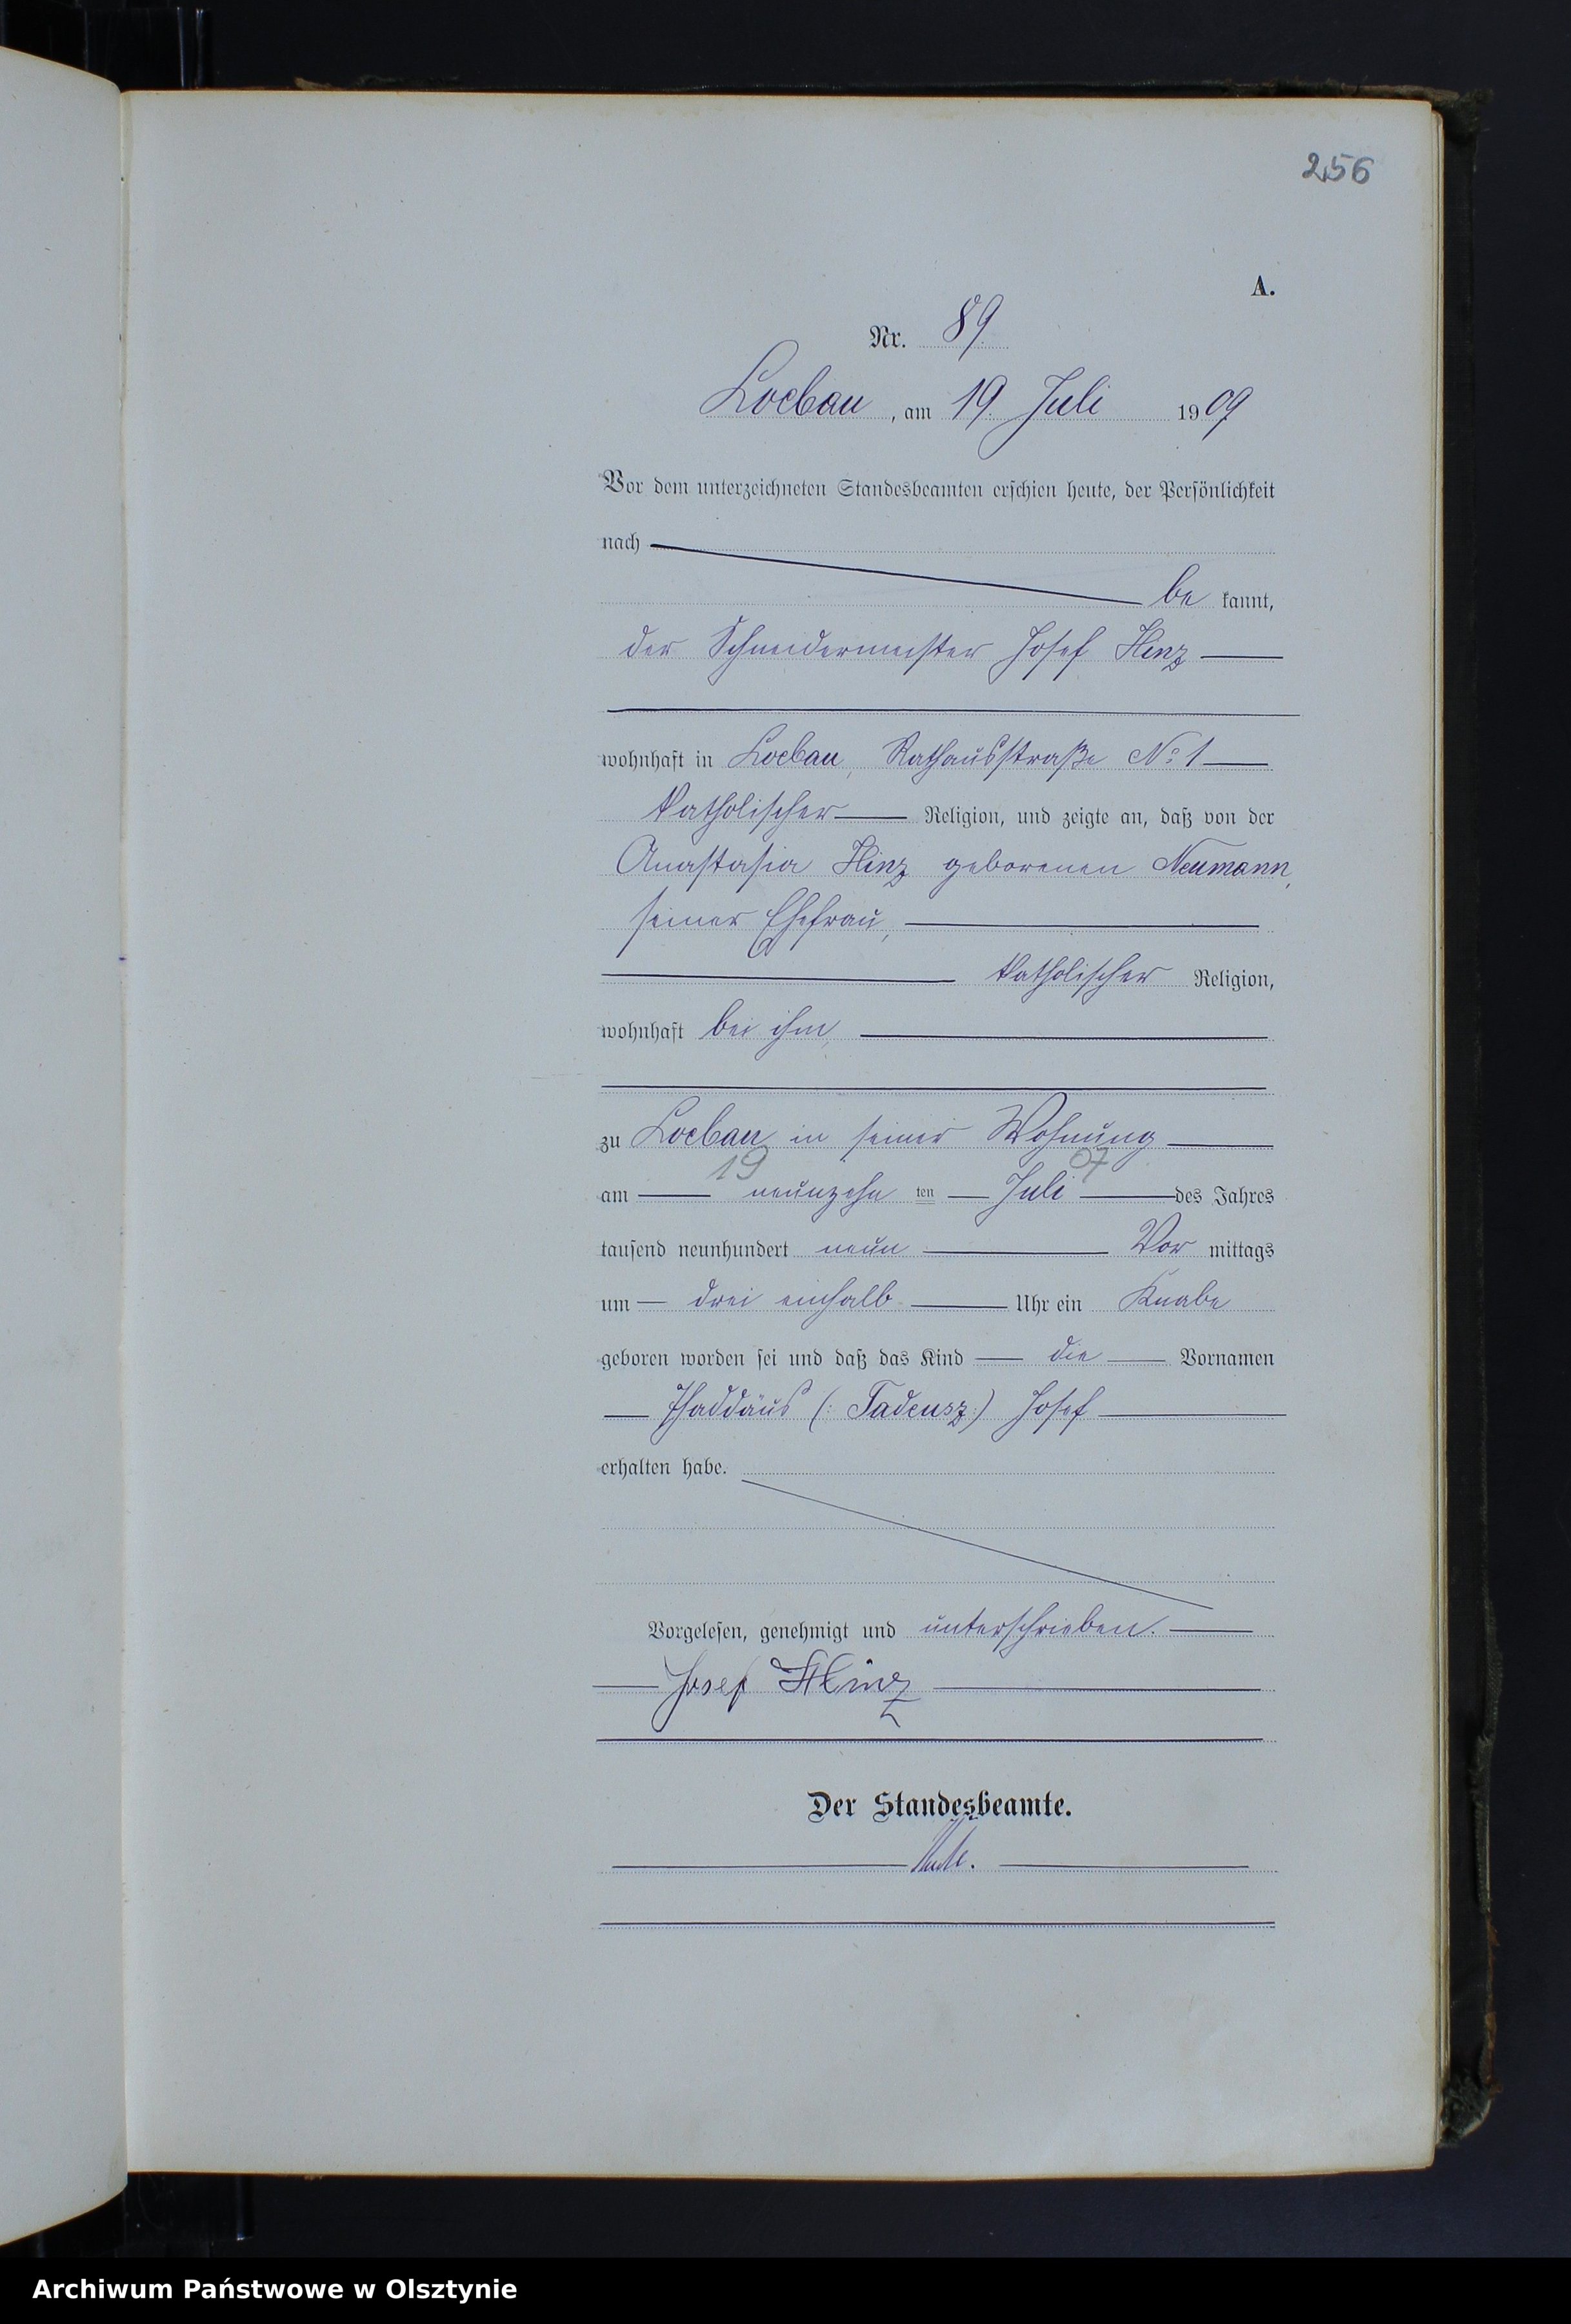 256
A.
Nr. 89.
Loebau, am 19. Juli 1909
Vor dem unterzeichneten Standesbeamten erschien heute, der Persönlichkeit
nach
be kannt,
der Schneidermeister Josef Hinz
wohnhaft in Loebau, Rathausstraße No 1
katholischer Religion, und zeigte an, daß von der
Anastasia Hinz geborenen Neumann,
seiner Ehefrau,
katholischer Religion,
wohnhaft bei ihm,
zu Loebau in seiner Wohnung
19 07
am neunzehn ten Juli des Jahres
tausend neunhundert neun Vor mittags
um drei einhalb Uhr ein Knabe
geboren worden sei und daß das Kind die Vornamen
Thaddäus (: Tadeusz :) Josef
erhalten habe.
Vorgelesen, genehmigt und unterschrieben.
Josef Hinz
Der Standesbeamte.
Archiwum Państwowe w Olsztynie